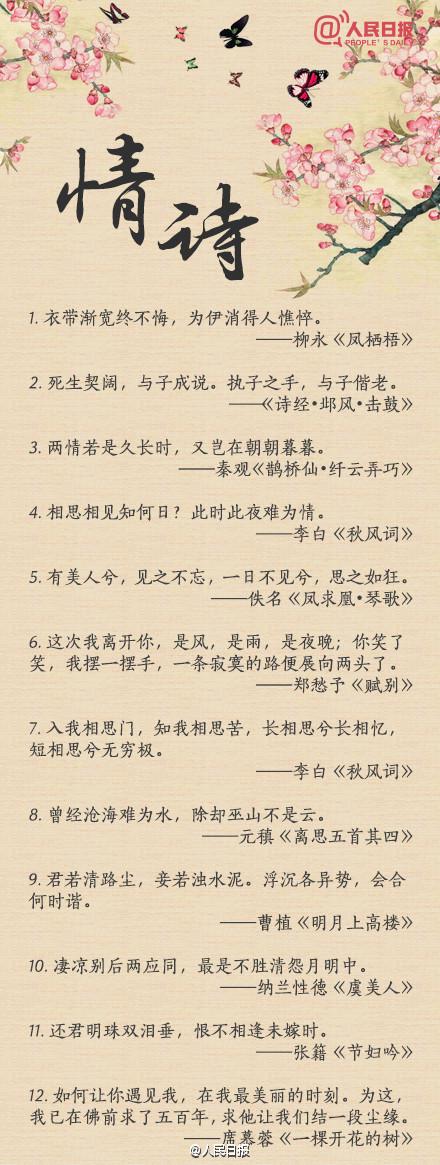 @人民日报
PEOPLE'S DAILY
情诗
1. 衣带渐宽终不悔，为伊消得人憔悴。
——柳永《凤栖梧》
2. 死生契阔，与子成说。执子之手，与子偕老。
——《诗经•邶风•击鼓》
3. 两情若是久长时，又岂在朝朝暮暮。
——秦观《鹊桥仙•纤云弄巧》
4. 相思相见知何日？此时此夜难为情。
——李白《秋风词》
5. 有美人兮，见之不忘，一日不见兮，思之如狂。
——佚名《凤求凰•琴歌》
6. 这次我离开你，是风，是雨，是夜晚；你笑了
笑，我摆一摆手，一条寂寞的路便展向两头了。
——郑愁予《赋别》
7. 入我相思门，知我相思苦，长相思兮长相忆，
短相思兮无穷极。
——李白《秋风词》
8. 曾经沧海难为水，除却巫山不是云。
——元稹《离思五首其四》
9. 君若清路尘，妾若浊水泥。浮沉各异势，会合
何时谐。
——曹植《明月上高楼》
10. 凄凉别后两应同，最是不胜清怨月明中。
——纳兰性德《虞美人》
11. 还君明珠双泪垂，恨不相逢未嫁时。
——张籍《节妇吟》
12. 如何让你遇见我，在我最美丽的时刻。为这，
我已在佛前求了五百年，求他让我们结一段尘缘。
——席慕蓉《一棵开花的树》
@人民日报